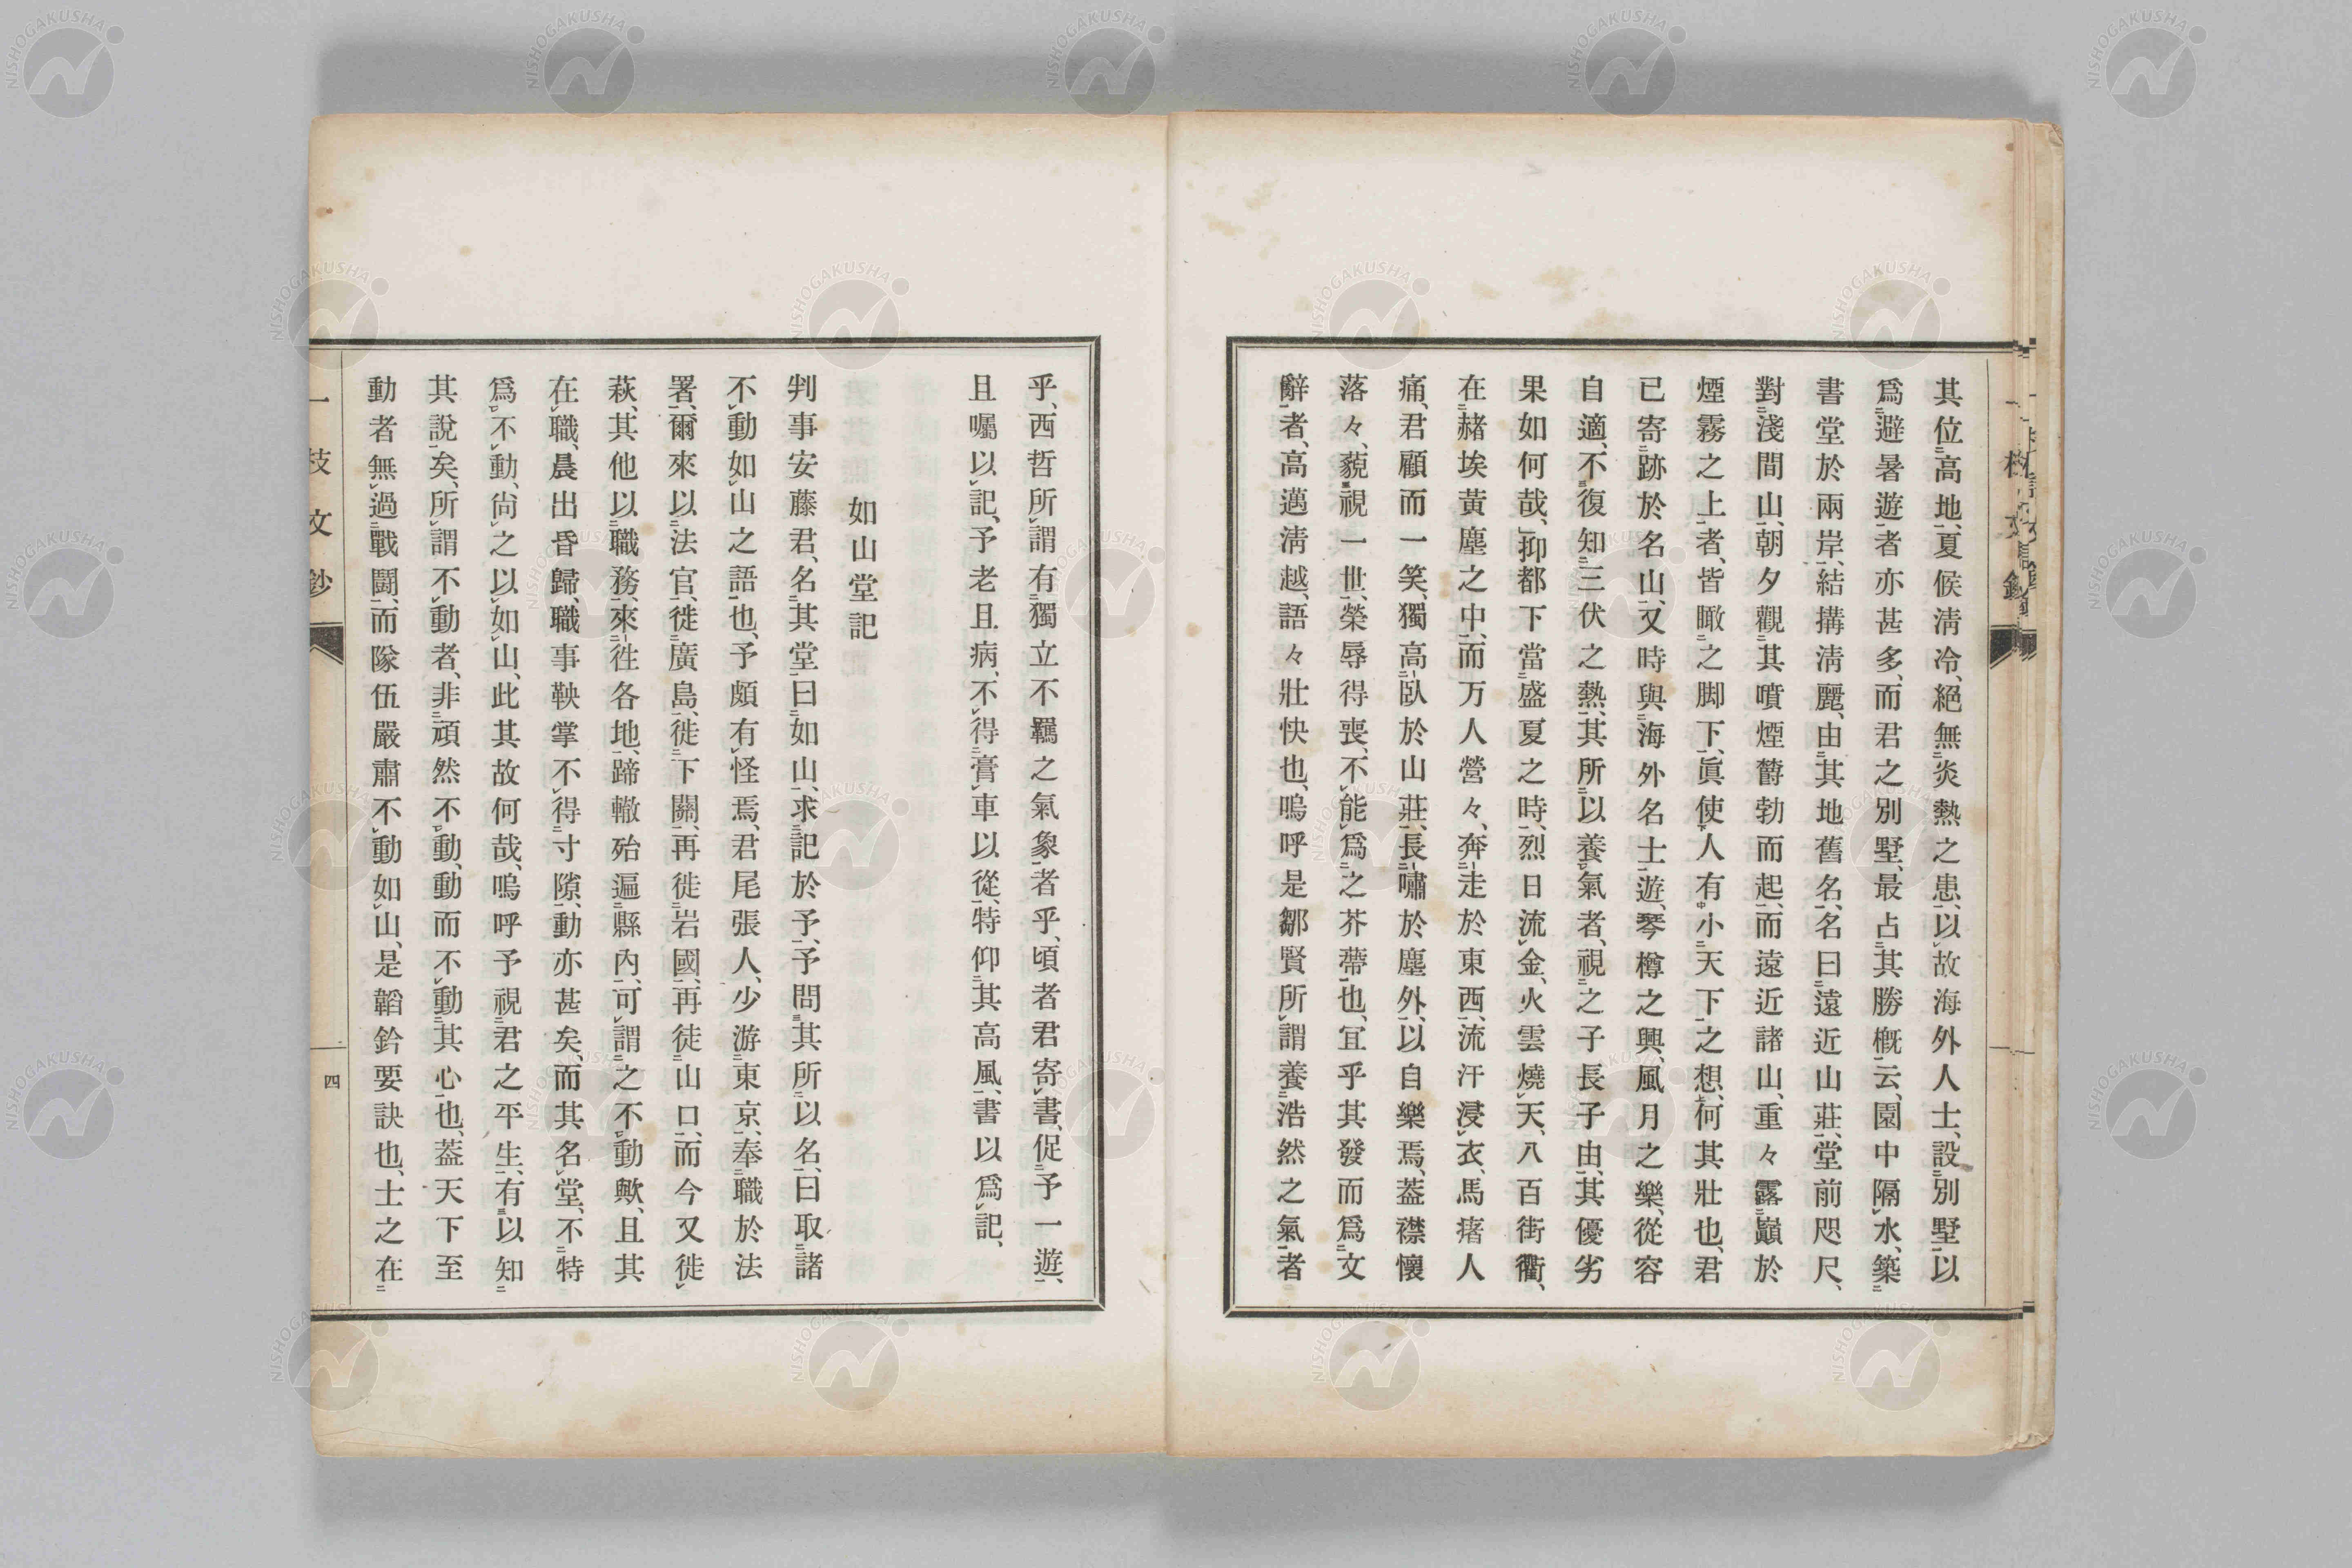 其位高地、夏候淸冷、絕無炎熱之患、以故海外人士、設別墅以
爲避暑遊者亦甚多、而君之別墅、最占其勝槪云、園中隔水、築
書堂於兩岸、結搆淸麗、由其地舊名、名曰遠近山莊、堂前咫尺、
對淺間山、朝夕觀其噴煙欝勃而起、而遠近諸山、重々露巓於
煙霧之上者、皆瞰之脚下、眞使人有小天下之想、何其壯也、君
已寄跡於名山、又時與海外名士遊、琴樽之興、風月之樂、從容
自適、不復知三伏之熱、其所以養氣者、視之子長子由、其優劣
果如何哉、抑都下當盛夏之時、烈日流金、火雲燒天、八百街衢、
在赭埃黃塵之中、而万人營々、奔走於東西、流汗浸衣、馬瘏人
痛、君顧而一笑、獨高臥於山莊、長嘯於塵外、以自樂焉、蓋襟懷
落々、藐視一世、榮辱得喪、不能爲之芥蔕也、宜乎其發而爲文
辭者、高邁淸越、語々壯快也、嗚呼是鄒賢所謂養浩然之氣者
乎、西哲所謂有獨立不羈之氣象者乎、頃者君寄書、促予一遊、
且囑以記、予老且病、不得膏車以從、特仰其高風、書以爲記、
如山堂記
判事安藤君、名其堂曰如山、求記於予、予問其所以名、曰取諸
不動如山之語也、予頗有怪焉、君尾張人、少游東京、奉職於法
署、爾來以法官、徙廣島、徙下關、再徙岩國、再徒山口、而今又徙
萩、其他以職務、來往各地、蹄轍殆遍縣內、可謂之不動歟、且其
在職、晨出昏歸、職事鞅掌不得寸隙、動亦甚矣、而其名堂、不特
爲不動、尙之以如山、此其故何哉、嗚呼予視君之平生、有以知
其說矣、所謂不動者、非頑然不動、動而不動其心也、蓋天下至
動者無過戰鬪、而隊伍嚴肅不動如山、是韜鈐要訣也、士之在
一枝文鈔
四